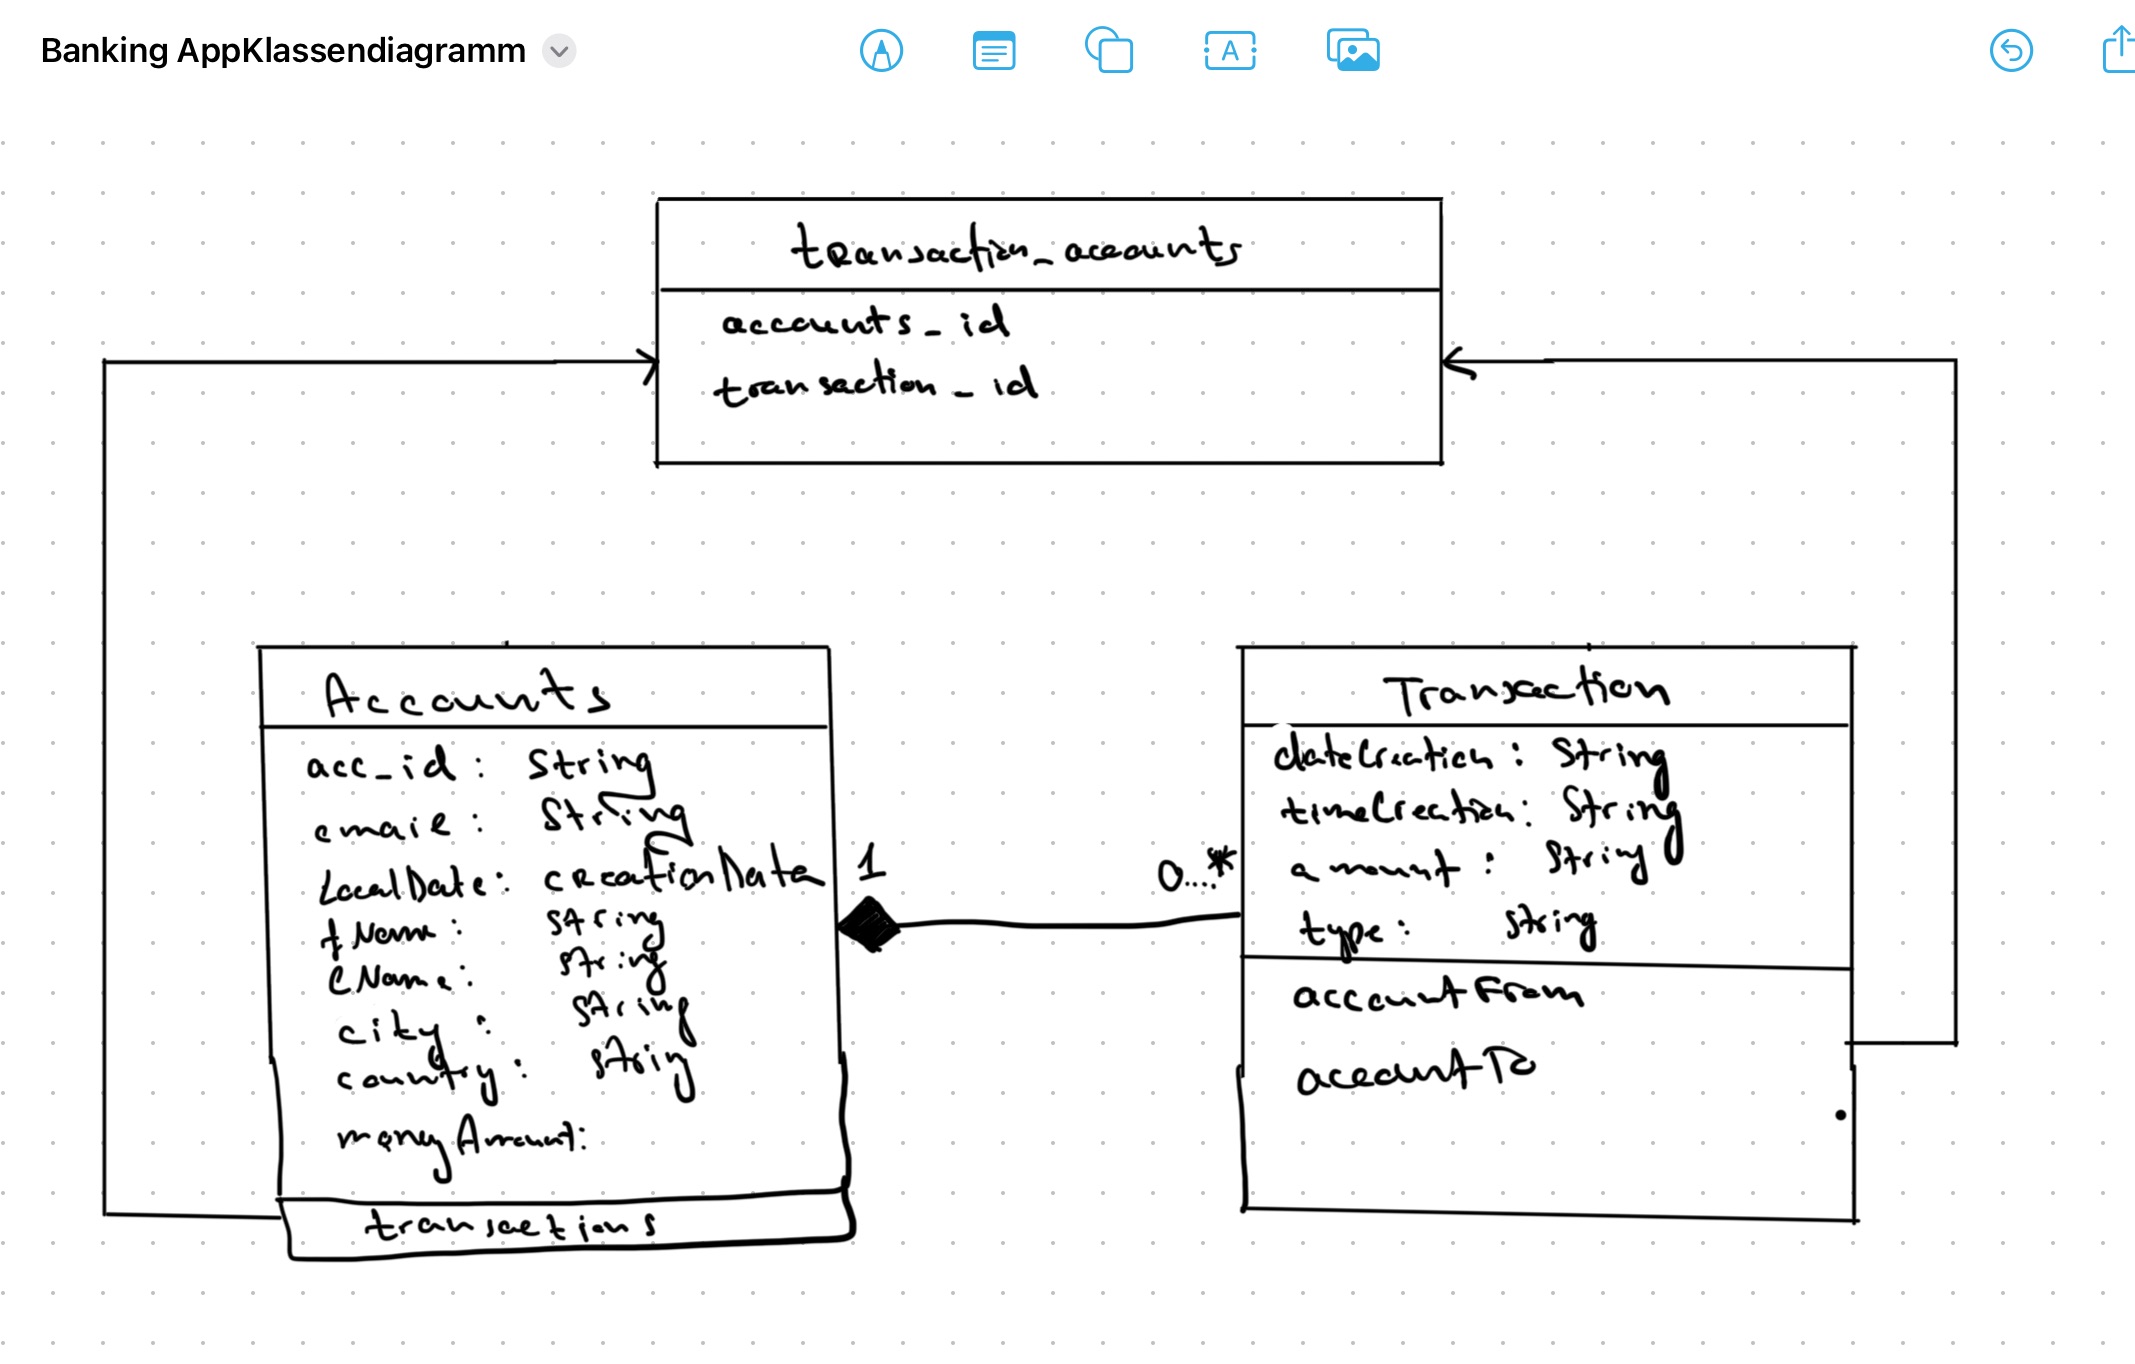 Banking AppKlassendiagramm
A
transaction_accounts
accounts_id
transaction_id
Accounts
acc_id : String
email : String
LocalDate: creationDate
fName : String
lName : String
city : String
country : String
moneyAmount:
transactions
1
0....*
Transaction
dateCreation : String
timeCreation : String
amount : String
type : String
accountFrom
accountTo